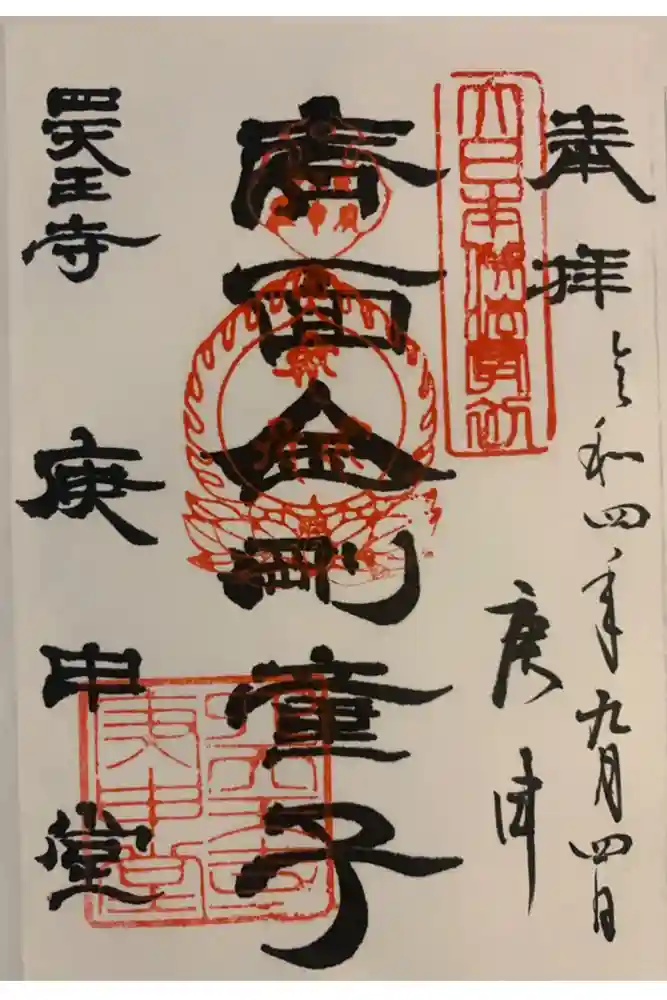 奉拝
令和四年九月四日
庚申
大日本佛法最初
青面金剛童子
四天王寺
庚申堂
四天王寺
庚申堂